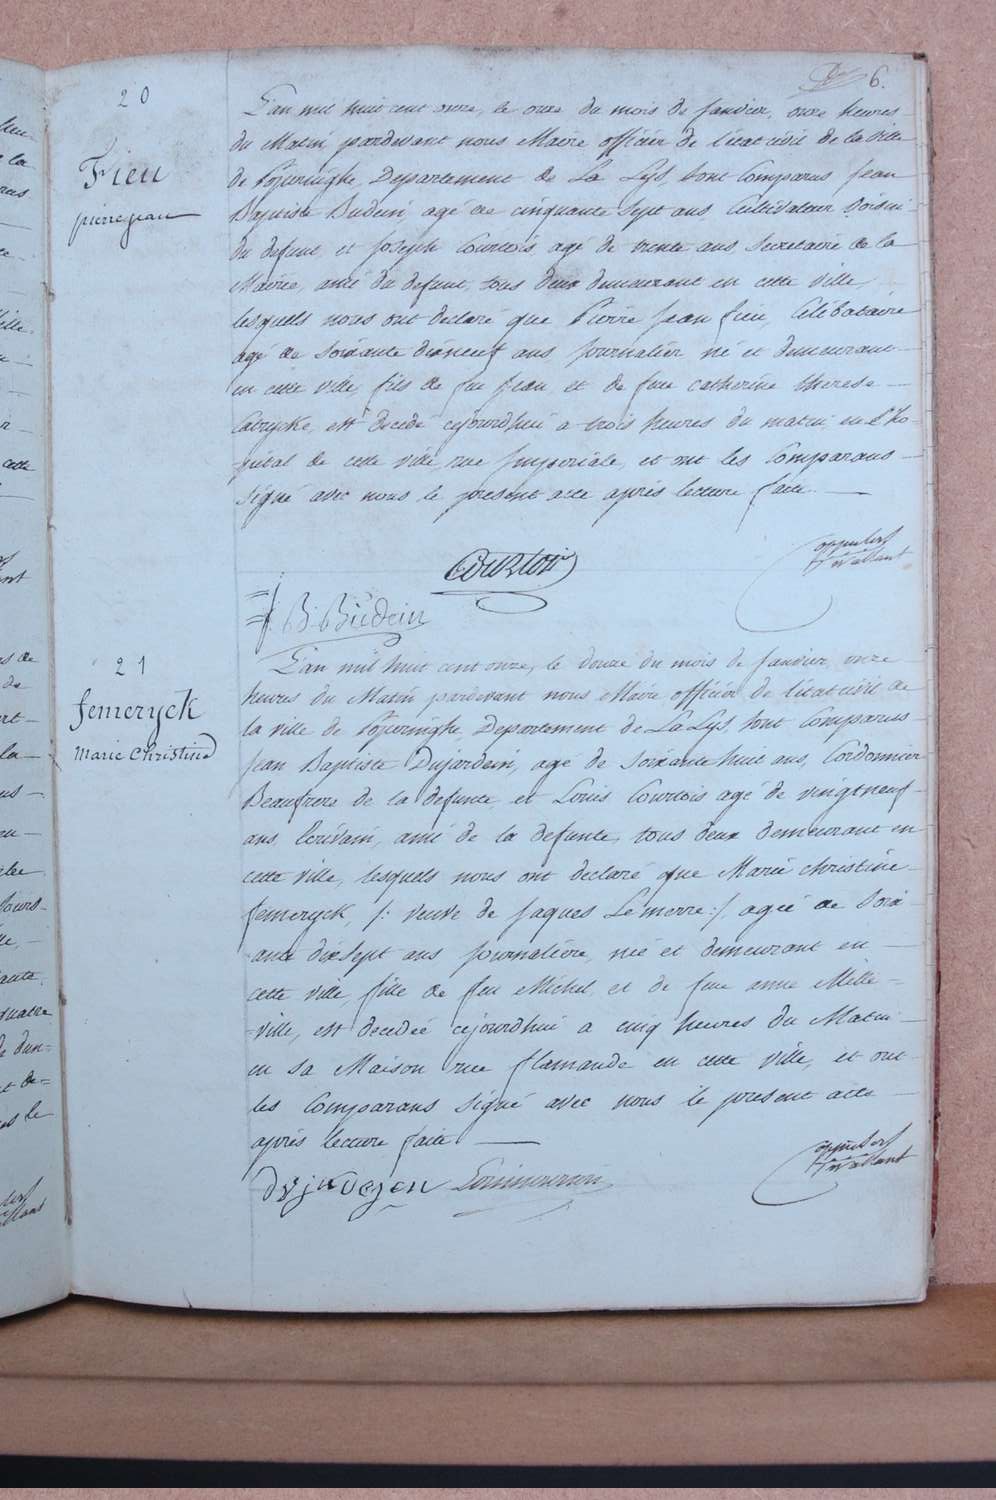 6.
20
Fieu
pierre jean
L'an mil huit cent onze, le onze du mois de Janvier, onze heures
du Matin pardevant nous Maire officier de l'état civil de la ville
de Poperinghe, Departement de La Lys, sont Comparus Jean
Baptiste Budein, agé de cinquante sept ans, Cultivateur Voisin
du defunt, et Joseph Courtois agé de trente ans, Secretaire de la
Mairie, ami du defunt, tous deux demeurant en cette ville,
lesquels nous ont declaré que Pierre Jean fieu, Célibataire
agé de Soixante dixneuf ans, Journalier né et demeurant
en cette ville, fils de feu Jean et de feue catherine therese
Cabrycke, est decedé cejourdhui a trois heures du matin en l'ho-
-pital de cette ville, rue Imperiale, et ont les Comparans
Signé avec nous le present acte après lecture faite.
Courtois
J. B. Budein
21
femeryck
Marie Christine
L'an mil huit cent onze, le douze du mois de Janvier, onze
heures du Matin pardevant nous Maire officier de l'état civil de
la ville de Poperinghe, Departement de La Lys, sont Comparus
Jean Baptiste Dujardein, agé de Soixante huit ans, Cordonnier
Beaufrere de la defunte, et Louis Courtois agé de vingtneuf
ans, Ecrivain, ami de la defunte, tous deux demeurant en
cette ville, lesquels nous ont declaré que Marie Christine
femeryck, /: veuve de Jaques Lemerre :/, agée de Soix-
ante dixsept ans Journalière, née et demeurant en
cette ville, fille de feu Michel, et de feue anne Mille-
-ville, est decedée cejourdhui a cinq heures du Matin
en sa Maison rue flamande en cette ville, et ont
les Comparans Signé avec nous le present acte
après lecture faite
dujardeyn